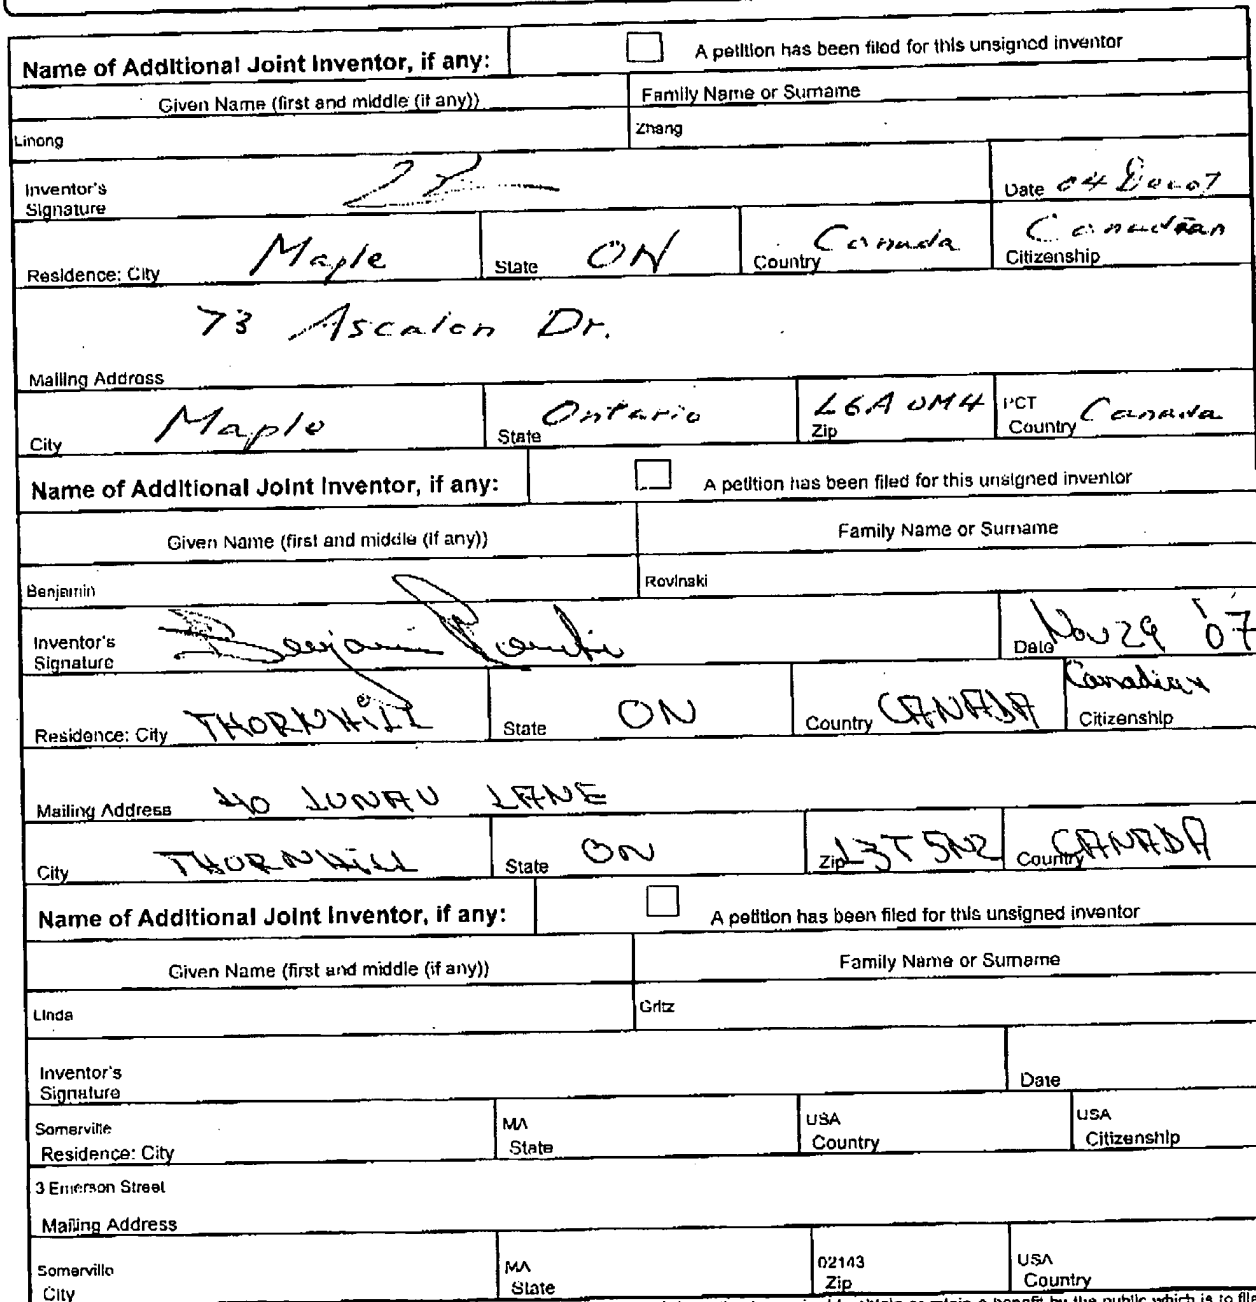 Name of Additional Joint Inventor, if any: A petition has been filed for this unsigned inventor
Given Name (first and middle (if any)) Family Name or Surname
Linong Zhang
Inventor's Signature Date 04 Dec 07
Residence: City Maple State ON Country Canada Canadian Citizenship
73 Ascalon Dr.
Mailing Address
City Maple State Ontario L6A 0M4 Zip PCT Country Canada
Name of Additional Joint Inventor, if any: A petition has been filed for this unsigned inventor
Given Name (first and middle (if any)) Family Name or Surname
Benjamin Rovinski
Inventor's Signature Benjamin Rovinski Date Nov 29 '07
Residence: City THORNHILL State ON Country CANADA Canadian Citizenship
Mailing Address 40 LUNAU LANE
City THORNHILL State ON Zip L3T 5N2 Country CANADA
Name of Additional Joint Inventor, if any: A petition has been filed for this unsigned inventor
Given Name (first and middle (if any)) Family Name or Surname
Linda Gritz
Inventor's Signature Date
Somerville MA USA USA
Residence: City State Country Citizenship
3 Emerson Street
Mailing Address
Somerville MA 02143 USA
City State Zip Country
a benefit by the public which is to fil